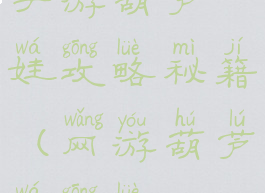 游葫芦
wá gōng lüè mì jí
娃攻略秘籍
wǎng yóu hú lú
(网游葫芦
wá gōng lüè